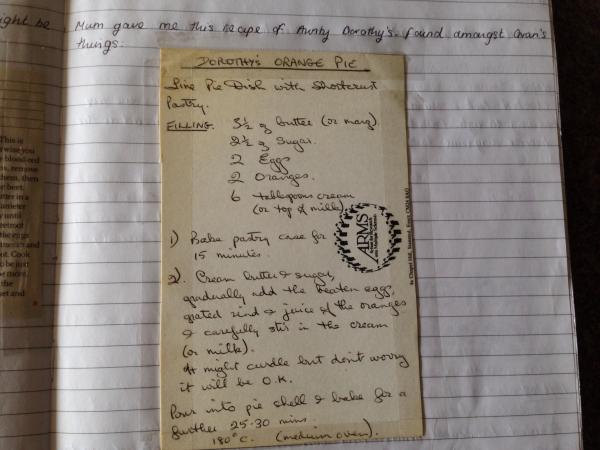 ight be
Mum gave me this recipe of Aunty Dorothy's. found amongst Gran's
things.
DOROTHY'S ORANGE PIE
Line Pie Dish with Shortcrust
Pastry.
FILLING. 3½ oz butter (or marg)
2½ oz Sugar.
2 Eggs
2 Oranges.
6 tablespoons cream
(or top of milk)
ARMS
1) Bake pastry case for
15 minutes.
2). Cream butter & sugar,
gradually add the beaten eggs,
grated rind & juice of the oranges
& carefully stir in the cream
(or milk).
It might curdle but don't worry
it will be O.K.
Pour into pie shell & bake for a
further 25-30 mins.
180°C. (medium oven).
This is
wise you
blood-red
as, remove
them, then
best.
tter in a
ameter
until
eetroot
the eggs
out. Cook
be just
be more,
the
et and